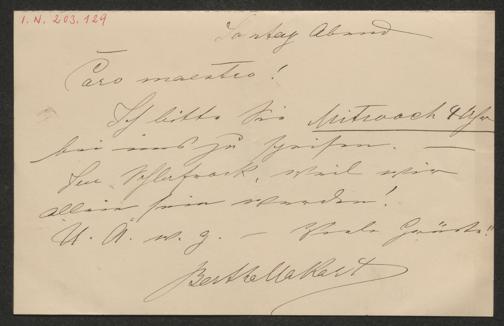 I. N. 203.129
Sontag Abend
Caro maestro!
Ich bitte Sie Mittwoch 4 Uhr
bei uns zu speisen. —
Im Schlafrock, weil wir
allein sein werden!
U. A. w. g. — Viele Grüße!
Bertha Makart